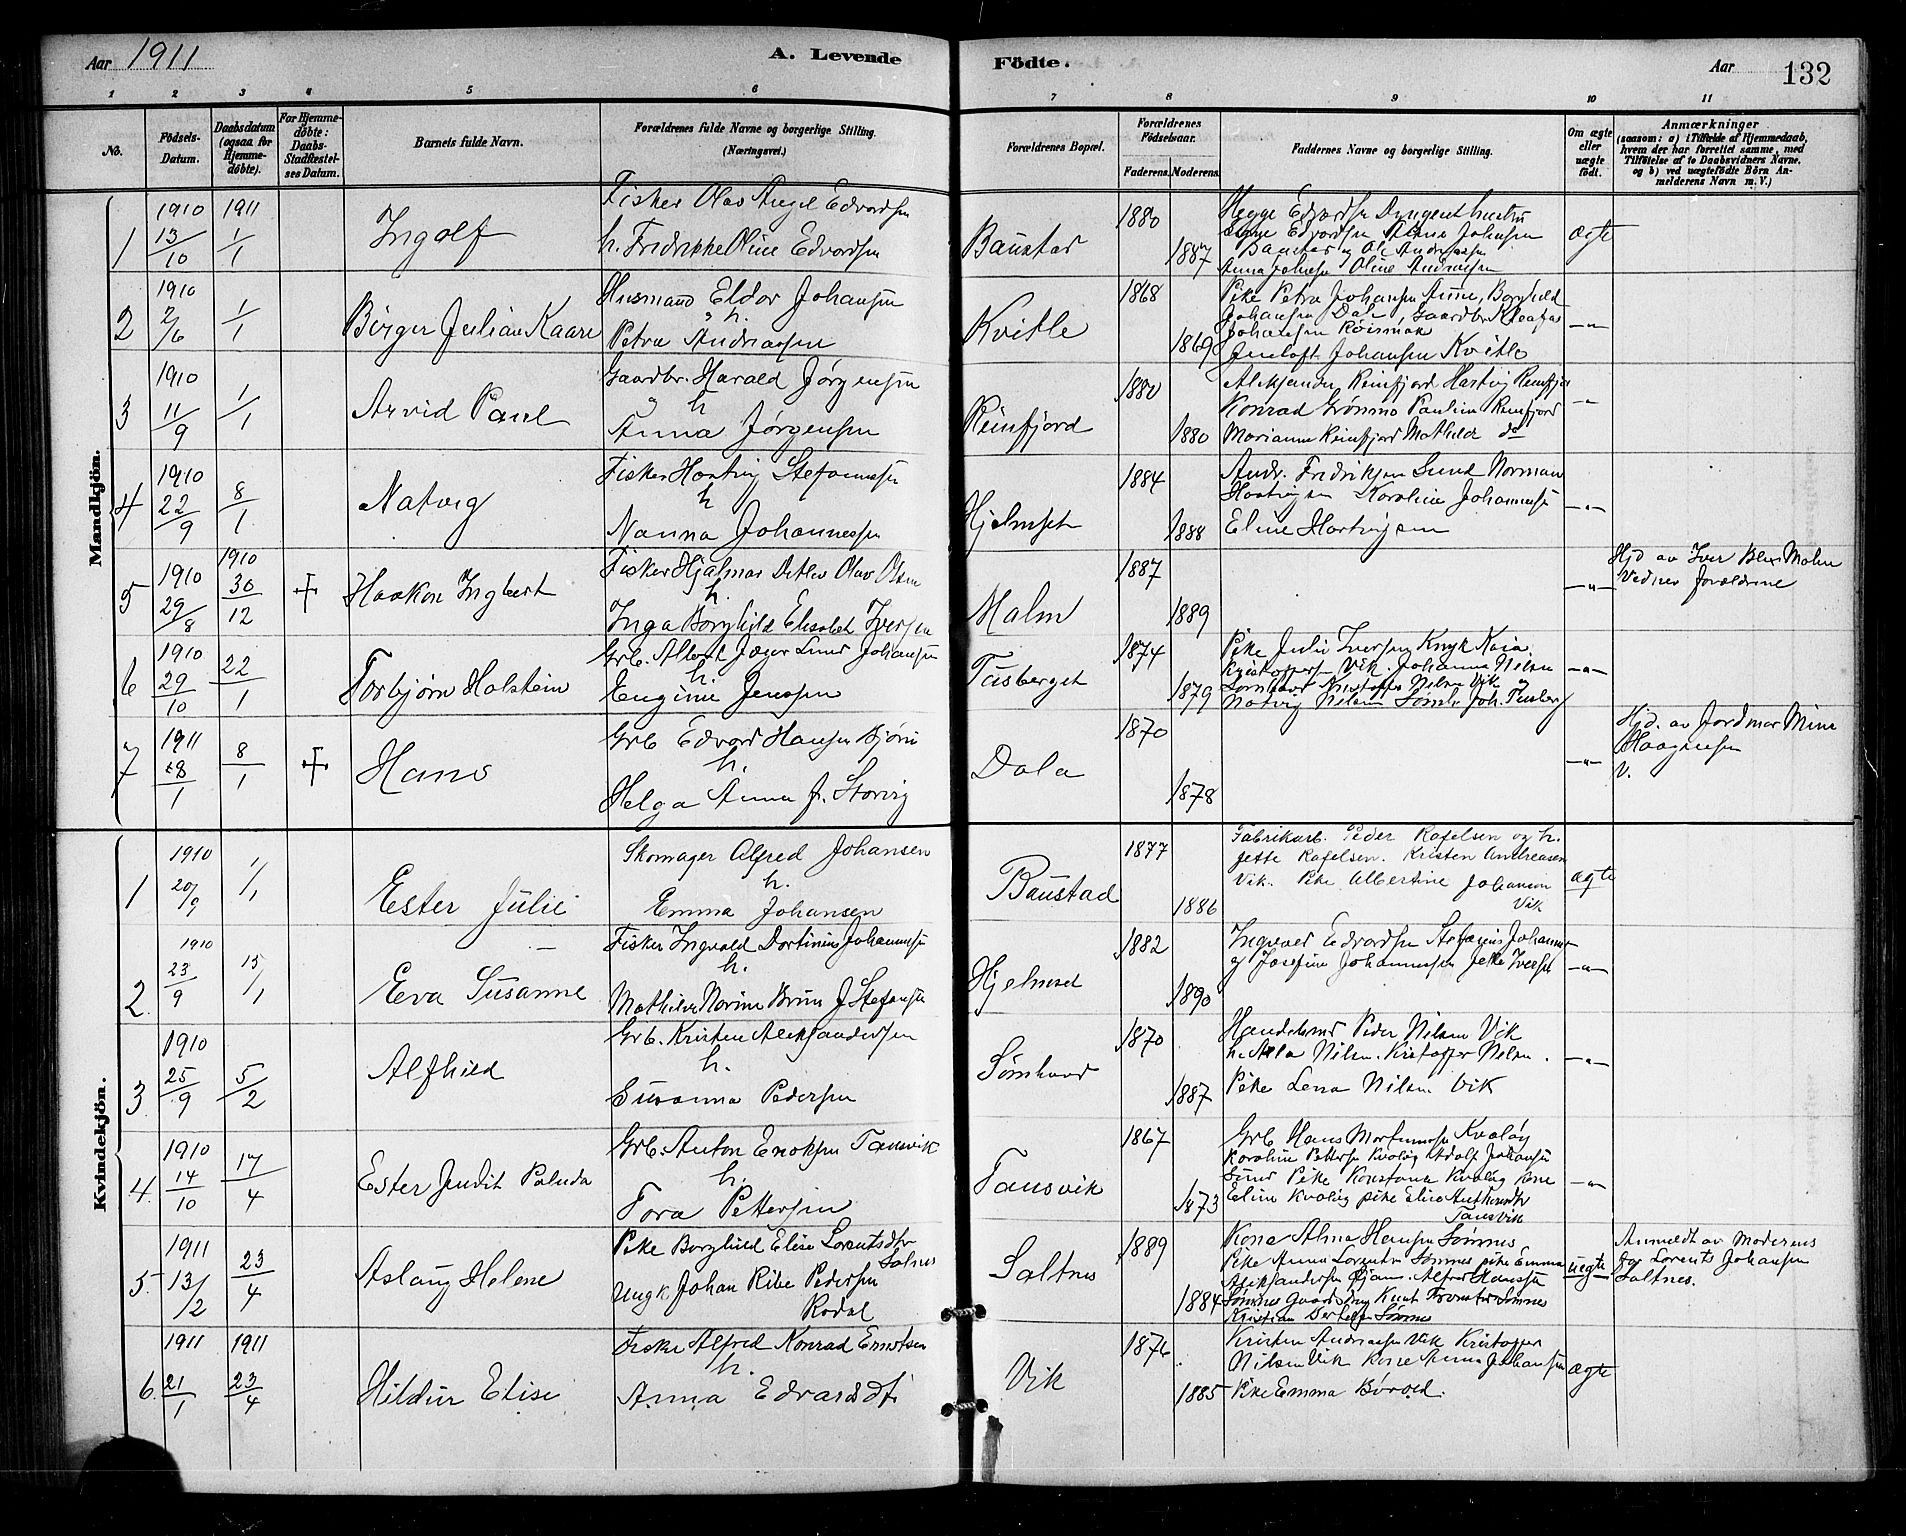 Aar 1911
A. Levende
Födte.
Aar
132
1 2 3 4 5 6 7 8 9 10 11
No.
Födsels-Datum.
Daabsdatum (ogsaa for Hjemme-döbte).
For Hjemme-döbte: Daabs-Stadfæstel-ses Datum.
Barnets fulde Navn.
Forældrenes fulde Navne og borgerlige Stilling.
(Næringsvei.)
Forældrenes Bopæl.
Forældrenes Födselsaar.
Faderens. Moderens.
Faddernes Navne og borgerlige Stilling.
Om ægte eller uægte födt.
Anmærkninger
(saasom: a) i Tilfælde af Hjemmedaab,
hvem der har forrettet samme, med
Tilföielse af to Daabsvidners Navne,
og b) ved uægtefödte Börn An-
melderens Navn m. V.)
Mandkjön.
1 1910 13/10 1911 1/1 Ingolf
Fisker Olav Angel Edvardsen
h. Fredrikke Oline Edvardsen
Baustad 1880 1887
Hegge Edvardsen
Edvardsen Johansen
Baustad Ol. Andreassen
Anna Johnsen Oline Andreassen
ægte
2 1910 2/6 1/1 Birger Julian Kaare
Husmand Eldor Johansen
h.
Petra Andreassen
Kvitle 1868 1869
Pike Petra Johansen Anne, Borghild
Johansen Dale, Gaardbr. Kleofas
Johansen
Johansen Kvitle
—"—
3 1910 11/9 1/1 Arvid Paul
Gaardbr. Harald Jørgensen
h
Anna Jørgensen
Reinfjord 1880 1880
Aleksander Reinfjord Hartvig Reinfjo
Konrad Grønmo Pauline Reinfjord
Marianne Reinfjord Mathilde do
—"—
4 1910 22/9 8/1 Natvig
Fisker Hartvig Stefanussen
h
Nanna Johannessen
Hjelmset 1884 1888
Andr. Fredriksen Sund Norman
Hartvigsen Karoline Johanness
Eline Hartvigsen
—"—
5 1910 29/8 1910 30/12 + Haakon Ingbert
Fisker Hjalmar Detlev Olav Olsen
h.
Inga Borghild Elisabet Iversen
Malm 1887 1889
—"—
Hjd av Iver Malm
Vidner forældrene
6 1910 29/10 22/1 Torbjørn Holstein
Grb. Albert Jæger Lund Johansen
h.
Euginie Jenssen
Tusberget 1874 1879
Pike Julie Iversen Kaia
Kristoffersen Vik. Johanna Nilsen
Sørnhaard Kristoffer Nilsen Vik
Natvig Nilsen
—"—
7 1911 8/1 8/1 + Hans
Grb Edvard Hansen Bjørn
h.
Helga Anna J. Storvig
Dala 1870 1878
—"—
Hjd. av Jordmor Mina
Haagensen
V.
Kvindekjön.
1 1910 20/9 1/1 Ester Julie
Skomager Alfred Johansen
h.
Emma Johansen
Baustad 1877 1886
Fabrikarb. Peder Rafelsen og h.
Jette Rafelsen. Kristen Andreasen
Vik. Pike Albertine Johansen
Vik
ægte
2. 1910 23/9 15/1 Eva Susanne
Fisker Ingvald Dortinius Johannes
h.
Mathilde Norine Bruun J. Stefans
Hjelmset 1882 1890
Ingvard Edvardsen Stefanus Johann
og Josefine Johannessen Jette Iversen
—"—
3. 1910 25/9 5/2 Alfhild
Grb. Kristen Aleksandersen
h.
Susanna Pedersen
Sømhaard 1870 1887
Handelsmd Peder Nilsen Vik
h. Nilsen. Kristoffer Nilsen.
Pike Lena Nilsen Vik
—"—
4. 1910 14/10 17/4 Ester Judit Paluda
Grb. Anton Enoksen Tansvik
h.
Tora Pettersen
Tansvik 1867 1873
Grb Hans Mortensen Kvaløy
Karoline Pettersen Kvaløy Adolf Johansen
Sund Pike Konstanse Kvaløy Kone
Eline Kvaløy pike Elise
Tansvik
—"—
5. 1911 13/2 23/4 Aslaug Helene
Pike Borghild Elise Lorentsdtr
Salnes
Ungk Johan Ribe Pedersen
Rodal
Saltnes 1889 1884
Kona Alma Hansen Sømnes
Pike Anna Lorentsen Sømnes pike Emma
Aleksandersen. Alfred Hansen
Sømnes Gaardsdreng Knut Sømnes
Kristian Sømnes
uegte
Anmeldt av Moderens
Lorents Johansen
Saltnes.
6. 1911 21/1 1911 23/4 Hildur Elise
Fisker Alfred Konrad
h.
Anna Edvardsdtr
Vik 1876 1885
Kristen Andreassen Vik Kristoffer
Nilsen Vik Kone Anna Johansen
Pike Emma Børvold.
ægte